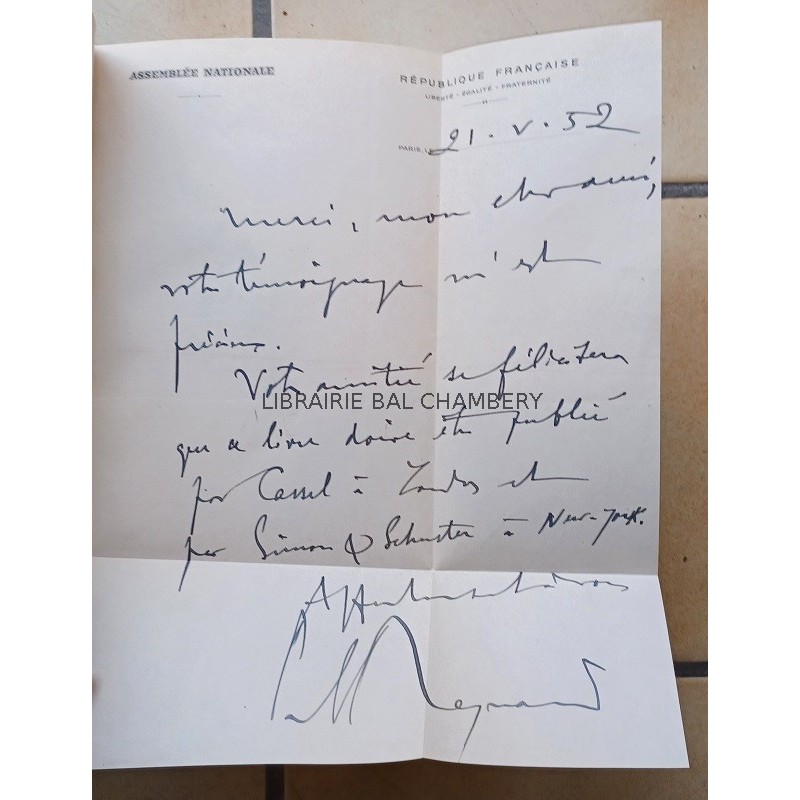 ASSEMBLÉE NATIONALE
RÉPUBLIQUE FRANÇAISE
LIBERTÉ - ÉGALITÉ - FRATERNITÉ
PARIS, LE 21. V. 52
Merci, mon cher ami,
votre témoignage m'est
précieux.
Votre amitié se félicitera
LIBRAIRIE BAL CHAMBERY
que ce livre doive être publié
par Cassel à Londres et
par Simon & Schuster à New-York.
Affectueusement à vous
Paul Reynaud